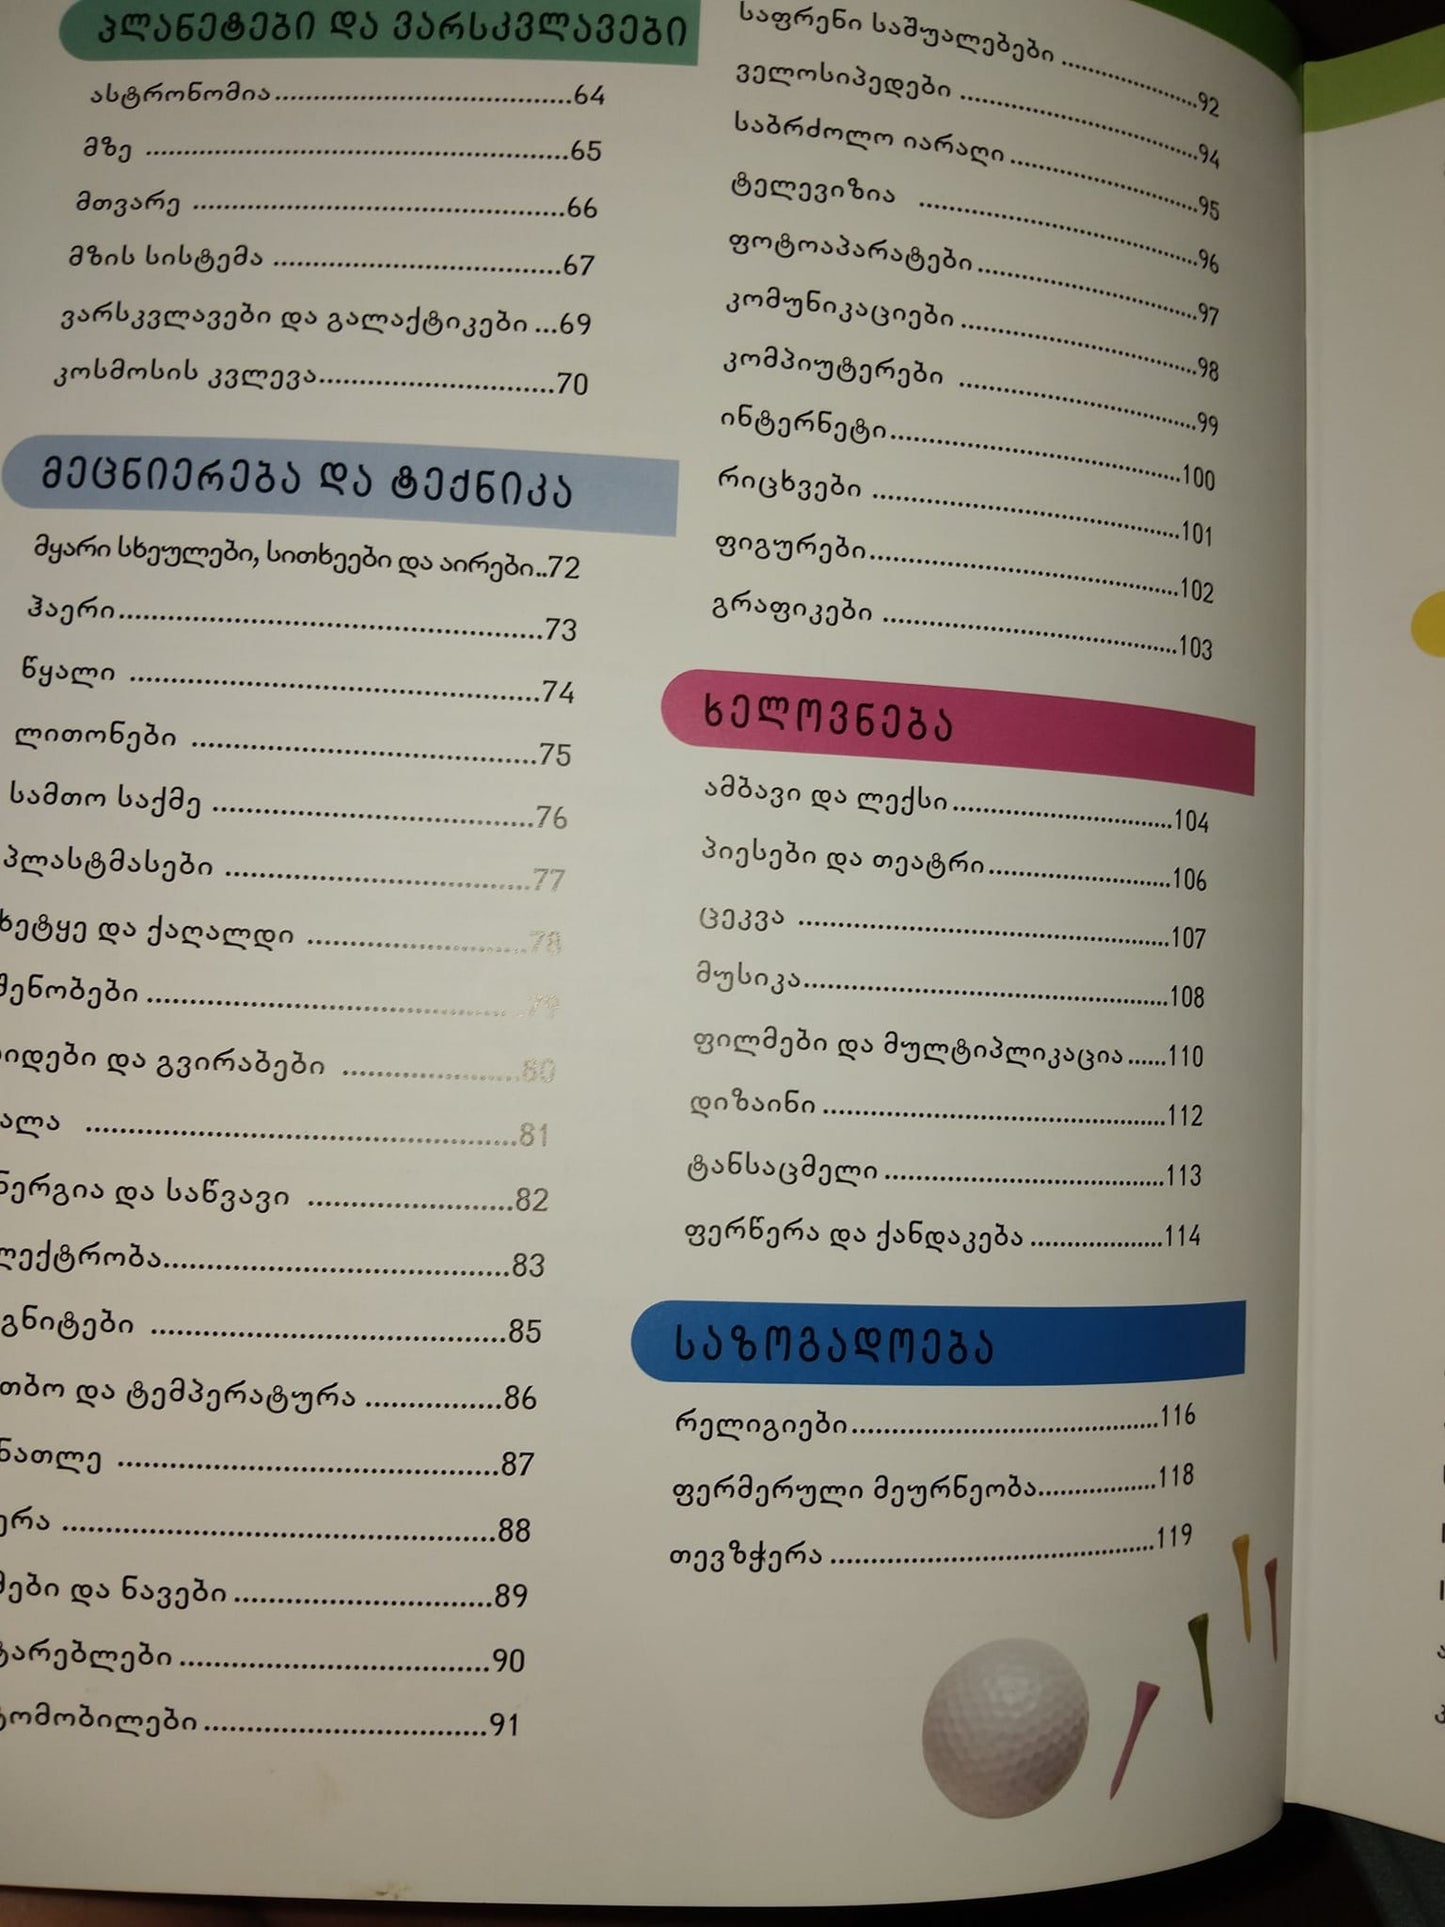 პლანეტები და ვარსკვლავები
ასტრონომია....................................64
მზე ....................................................65
მთვარე ..............................................66
მზის სისტემა ....................................67
ვარსკვლავები და გალაქტიკები ...69
კოსმოსის კვლევა.............................70
მეცნიერება და ტექნიკა
მყარი სხეულები, სითხეები და აირები..72
ჰაერი..................................................73
წყალი ................................................74
ლითონები ........................................75
სამთო საქმე .....................................76
პლასტმასები ...................................77
ხეტყე და ქაღალდი .........................78
შენობები ...........................................79
იდები და გვირაბები .....................80
ალა ..................................................81
ნერგია და საწვავი ........................82
ლექტრობა........................................83
გნიტები .........................................85
თბო და ტემპერატურა ................86
ნათლე ............................................87
ერა ..................................................88
მები და ნავები ..............................89
ტარებლები ....................................90
ტომობილები .................................91
საფრენი საშუალებები ...................92
ველოსიპედები ................................94
საბრძოლო იარაღი .........................95
ტელევიზია .....................................96
ფოტოაპარატები .............................97
კომუნიკაციები ................................98
კომპიუტერები ................................99
ინტერნეტი.......................................100
რიცხვები .........................................101
ფიგურები.........................................102
გრაფიკები .......................................103
ხელოვნება
ამბავი და ლექსი.............................104
პიესები და თეატრი........................106
ცეკვა ................................................107
მუსიკა...............................................108
ფილმები და მულტიპლიკაცია......110
დიზაინი ...........................................112
ტანსაცმელი ....................................113
ფერწერა და ქანდაკება ..................114
საზოგადოება
რელიგიები.......................................116
ფერმერული მეურნეობა.................118
თევზჭერა ........................................119